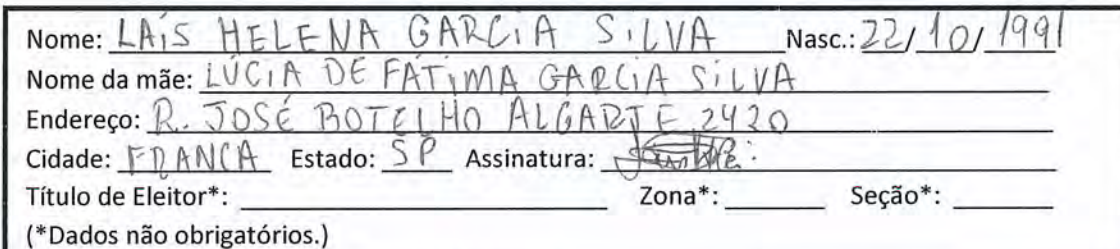 Nome: LAÍS HELENA GARCIA SILVA Nasc.: 22/10/1991
Nome da mãe: LÚCIA DE FÁTIMA GARCIA SILVA
Endereço: R. JOSÉ BOTELHO ALGARTE 2420
Cidade: FRANCA Estado: SP Assinatura:
Título de Eleitor*: Zona*: Seção*:
(*Dados não obrigatórios.)